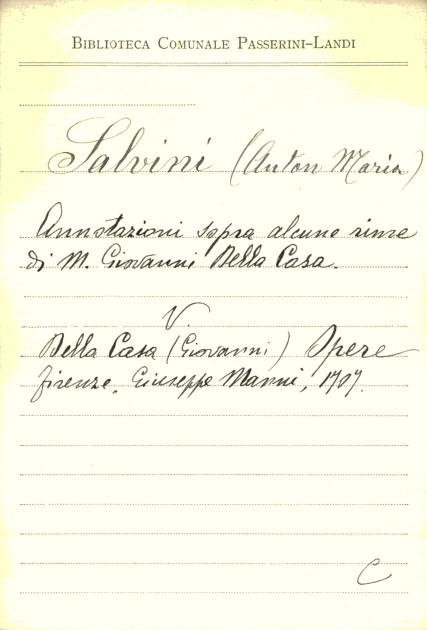 BIBLIOTECA COMUNALE PASSERINI-LANDI
Salvini (Anton Maria)
Annotazioni sopra alcune rime
di M. Giovanni Della Casa.
V.
Della Casa (Giovanni) Opere
Firenze, Giuseppe Manni, 1707.
C